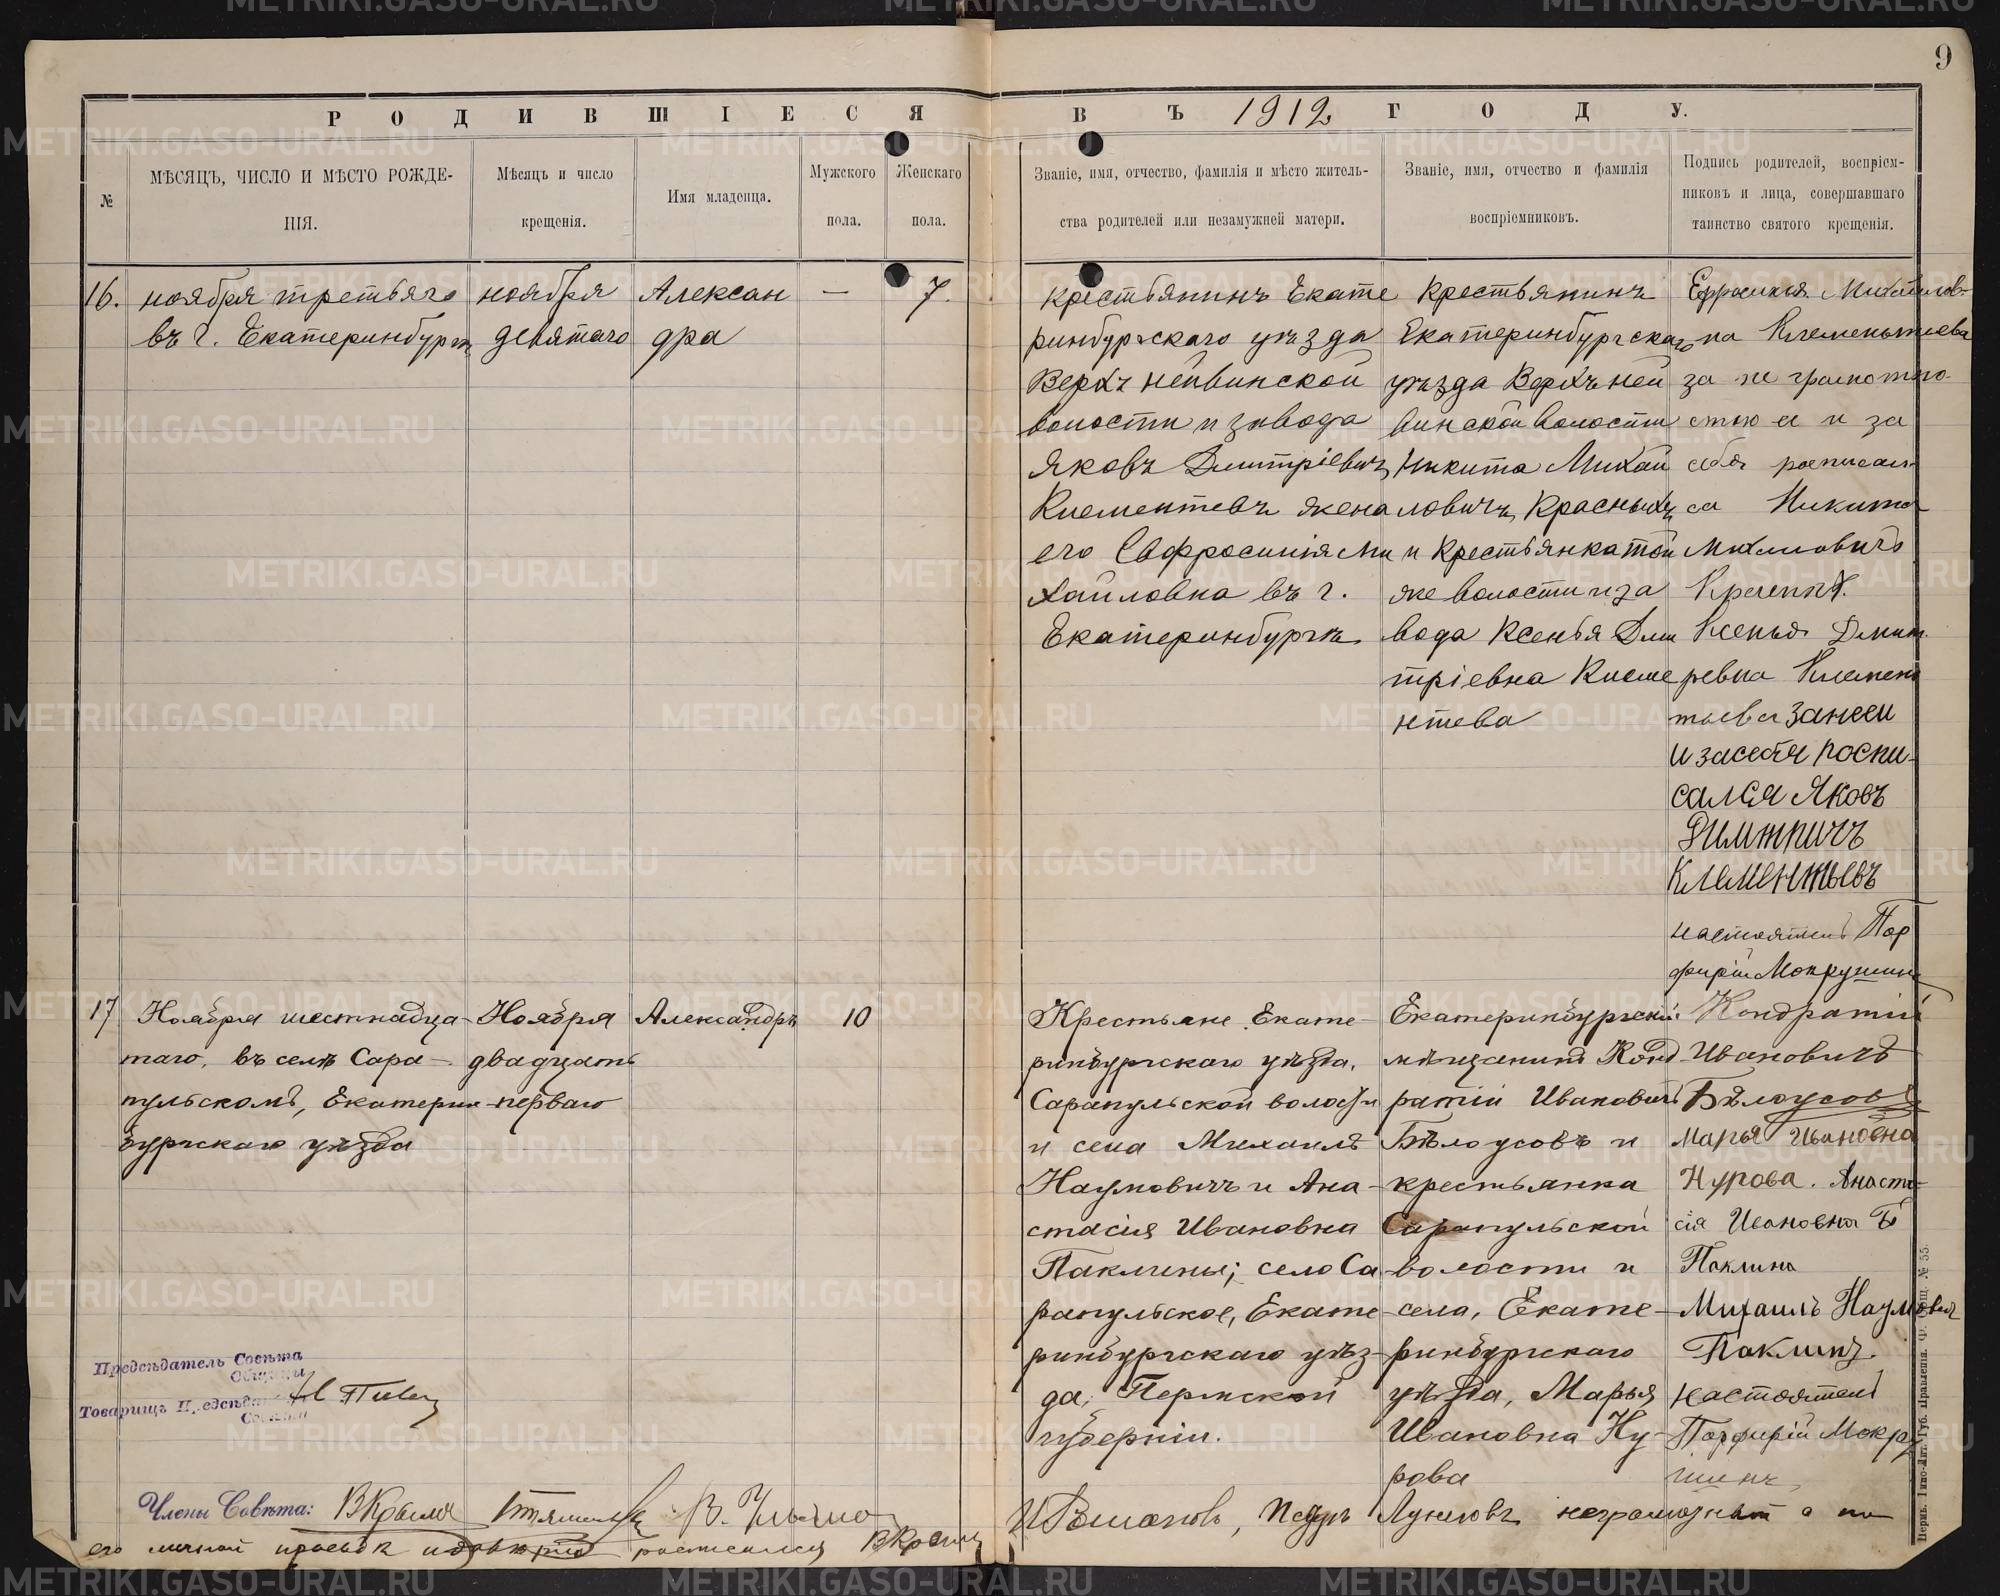 9
РОДИВШІЕСЯ ВЪ 1912 ГОДУ.
№
МѢСЯЦЪ, ЧИСЛО И МѢСТО РОЖДЕ-
НІЯ.
Мѣсяцъ и число
крещенія.
Имя младенца.
Мужского
пола.
Женскаго
пола.
Званіе, имя, отчество, фамилія и мѣсто житель-
ства родителей или незамужней матери.
Званіе, имя, отчество и фамилія
воспріемниковъ.
Подпись родителей, воспріем-
никовъ и лица, совершавшаго
таинство святого крещенія.
16.
ноября третьяго
въ г. Екатеринбургѣ
ноября
девятаго
Алексан
дра
—
7.
крестьянинъ Екате
ринбургскаго уѣзда
Верхъ нейвинской
волости и завода
Яковъ Дмитріевичъ
Клементевъ жена
его Евфросинія Ми
хайловна въ г.
Екатеринбургѣ
крестьянинъ
Екатеринбургскаго
уѣзда Верхъ ней
винской волости
Никита Михай
ловичъ Красныхъ
и крестьянка той
же волости и за
вода Ксенья Дми
тріевна Клеме
нтева
Ефросинья Михайлов-
на Клементьева
за не грамотно
стью ея и за
себя росписал
са Никита
Михаиловичъ
Красныхъ
Ксенья Дмит
ревна Клемен
тьева занеен
и засебя роспи-
сался Яковъ
Димтричъ
Клементьевъ
настоятель Пор
фирій Мокрушинъ
17
Ноября шестнадца-
таго, въ селѣ Сара-
пульскомъ, Екатерин-
бургскаго уѣзда
Ноября
двадцать
перваго
Александръ
10
Крестьяне Екате-
ринбургскаго уѣзда,
Сарапульской волости
и села Михаилъ
Наумовичъ и Ана-
стасія Ивановна
Паклины; село Са
рапульское, Екате-
ринбургскаго уѣз-
да, Пермской
губерніи.
Екатеринбургскій
мѣщанинъ Конд
ратій Ивановичъ
Бѣлоусовъ и
крестьянка
Сарапульской
волости и
села, Екате-
ринбургскаго
уѣзда, Марья
Ивановна Ну-
рова
Кондратій
Ивановичъ
Бѣлоусовъ
Марья Ивановна
Нурова. Анаста-
сія Ивановна
Паклина
Михаилъ Наумовичъ
Паклинъ.
настоятель
Порфирій Мокру
шинъ
Предсѣдатель Совѣта
Общины
Товарищъ Предсѣдателя
Совѣта
Члены Совѣта:
неграмотный а по
его личной просьбѣ росписался
Пермь. Типо-Лит. Губ. Правленія. № 55.
METRIKI.GASO-URAL.RU